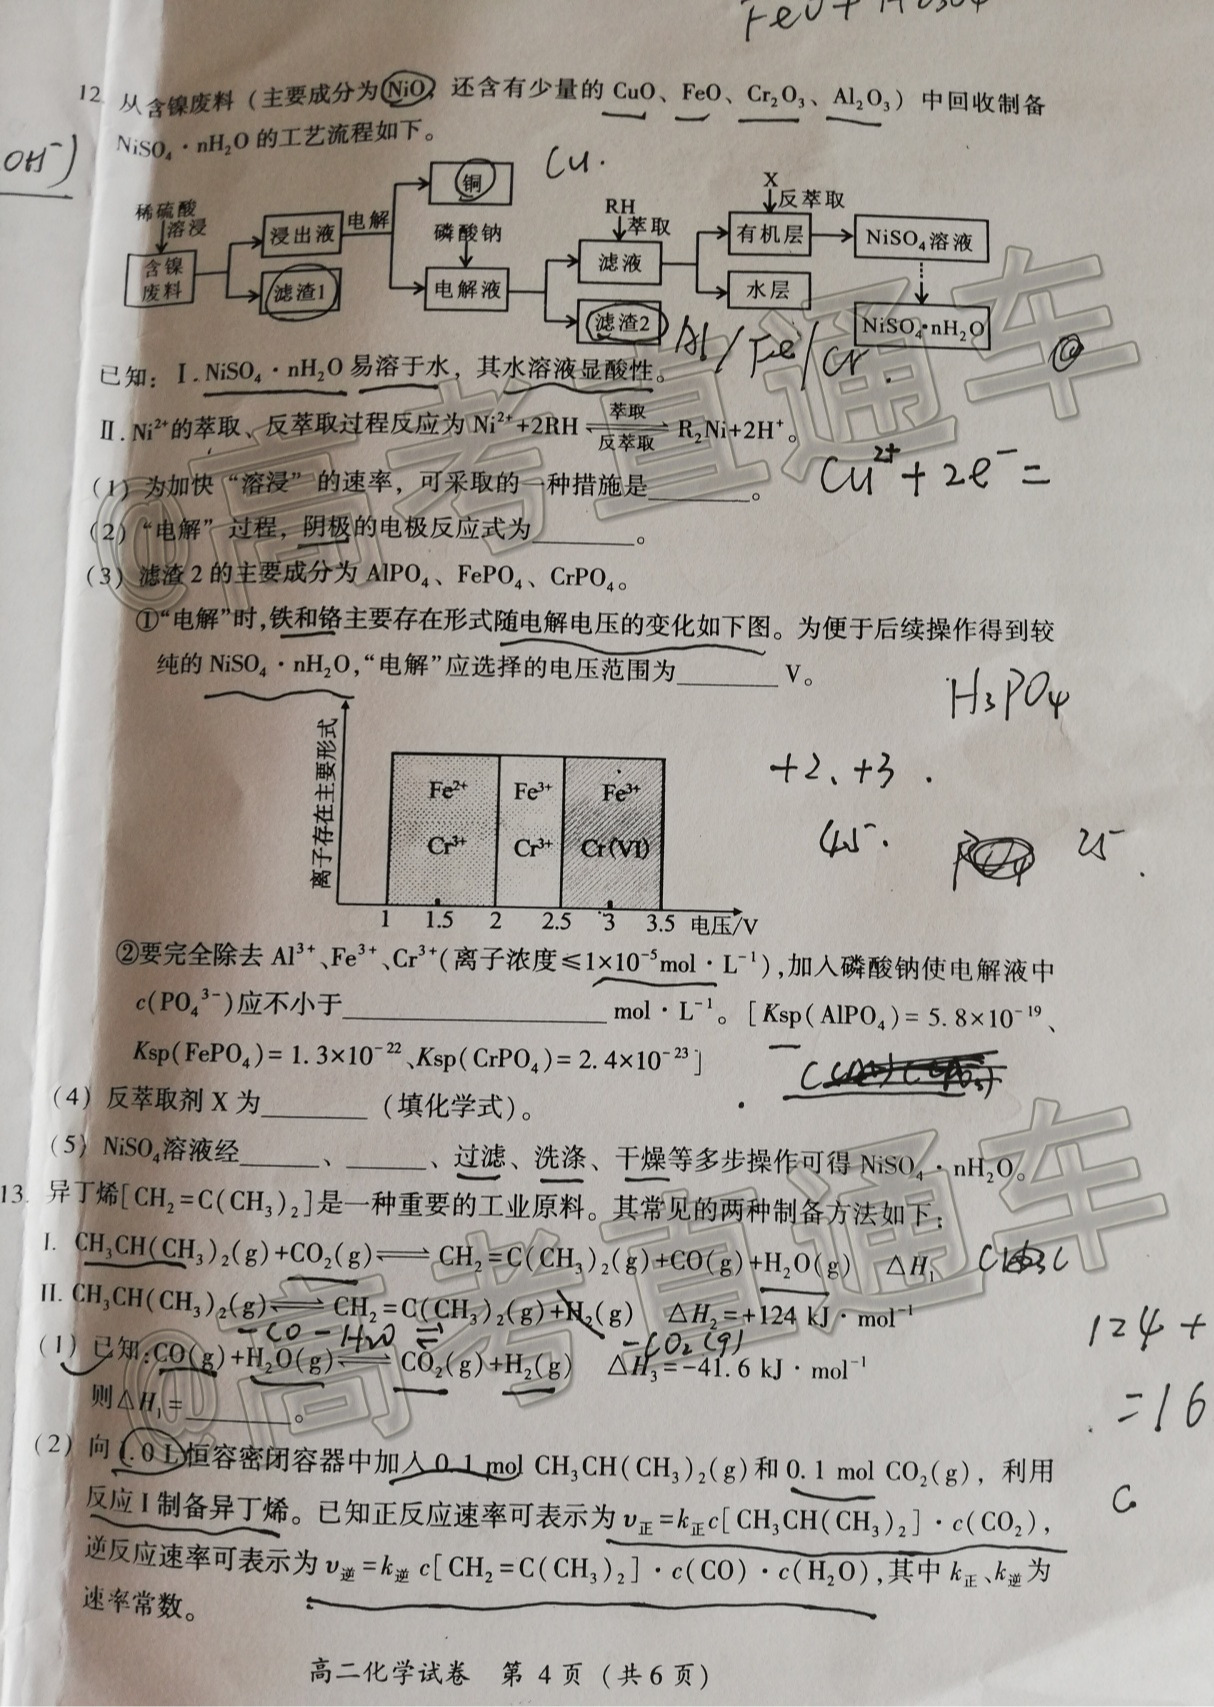 FeO+H₂SO₄
12 从含镍废料（主要成分为NiO，还含有少量的 CuO、FeO、Cr₂O₃、Al₂O₃）中回收制备
NiSO₄·nH₂O的工艺流程如下。
OH⁻)
Cu.
稀硫酸
溶浸
含镍
废料
浸出液
滤渣1
电解
铜
磷酸钠
电解液
RH
萃取
滤液
滤渣2
X
反萃取
有机层
水层
NiSO₄溶液
NiSO₄·nH₂O
Al/Fe/Cr.
已知：Ⅰ.NiSO₄·nH₂O易溶于水，其水溶液显酸性。
Ⅱ.Ni²⁺的萃取、反萃取过程反应为Ni²⁺+2RH ⇌ R₂Ni+2H⁺。
萃取
反萃取
Cu²⁺+2e⁻=
(1) 为加快“溶浸”的速率，可采取的一种措施是______。
(2)“电解”过程，阴极的电极反应式为______。
(3) 滤渣2的主要成分为AlPO₄、FePO₄、CrPO₄。
①“电解”时,铁和铬主要存在形式随电解电压的变化如下图。为便于后续操作得到较
纯的NiSO₄·nH₂O,“电解”应选择的电压范围为______V。
H₃PO₄
+2、+3.
45.
25.
离子存在主要形式
Fe²⁺ Fe³⁺ Fe³⁺
Cr³⁺ Cr³⁺ Cr(VI)
1 1.5 2 2.5 3 3.5 电压/V
②要完全除去Al³⁺、Fe³⁺、Cr³⁺(离子浓度≤1×10⁻⁵mol·L⁻¹),加入磷酸钠使电解液中
c(PO₄³⁻)应不小于______________mol·L⁻¹。[Ksp(AlPO₄)=5.8×10⁻¹⁹、
Ksp(FePO₄)=1.3×10⁻²²、Ksp(CrPO₄)=2.4×10⁻²³]
(4) 反萃取剂X为______（填化学式）。
(5) NiSO₄溶液经______、______、过滤、洗涤、干燥等多步操作可得NiSO₄·nH₂O。
13. 异丁烯[CH₂=C(CH₃)₂]是一种重要的工业原料。其常见的两种制备方法如下：
Ⅰ. CH₃CH(CH₃)₂(g)+CO₂(g)⇌CH₂=C(CH₃)₂(g)+CO(g)+H₂O(g) △H₁
Ⅱ. CH₃CH(CH₃)₂(g)⇌CH₂=C(CH₃)₂(g)+H₂(g) △H₂=+124 kJ·mol⁻¹
-CO-H₂O ⇌ -CO₂(g)
(1) 已知:CO(g)+H₂O(g)⇌CO₂(g)+H₂(g) △H₃=-41.6 kJ·mol⁻¹
则△H₁=______。
124+
=16
(2) 向1.0 L恒容密闭容器中加入0.1 mol CH₃CH(CH₃)₂(g)和0.1 mol CO₂(g)，利用
反应Ⅰ制备异丁烯。已知正反应速率可表示为v正=k正c[CH₃CH(CH₃)₂]·c(CO₂)，
逆反应速率可表示为v逆=k逆c[CH₂=C(CH₃)₂]·c(CO)·c(H₂O),其中k正、k逆为
速率常数。
高二化学试卷 第4页（共6页）
@高考直通车
@高考直通车